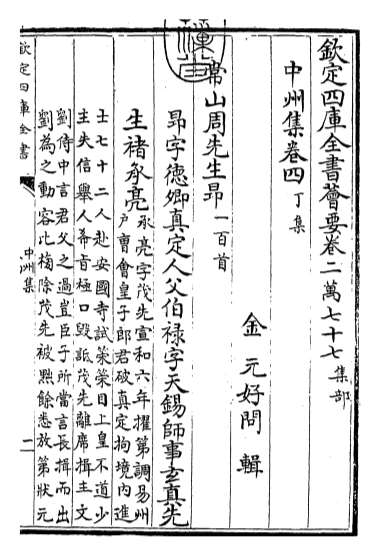 欽定四庫全書薈要卷二萬七十七 集部
中州集卷四 丁集
金 元好問 輯
常山周先生昂 一百首
昂字德卿真定人父伯祿字天錫師事玄真先
生褚承亮
承亮字茂先宣和六年擢第調易州
户曹會皇子郎君破真定拘境內進
士七十二人赴安國寺試策策目上皇不道少
主失信舉人希旨極口毀詆茂先離席揖主文
劉侍中言君父之過豈臣子所當言長揖而出
劉為之動容比榜除茂先被黜餘悉放第狀元
欽定四庫全書
中州集
一